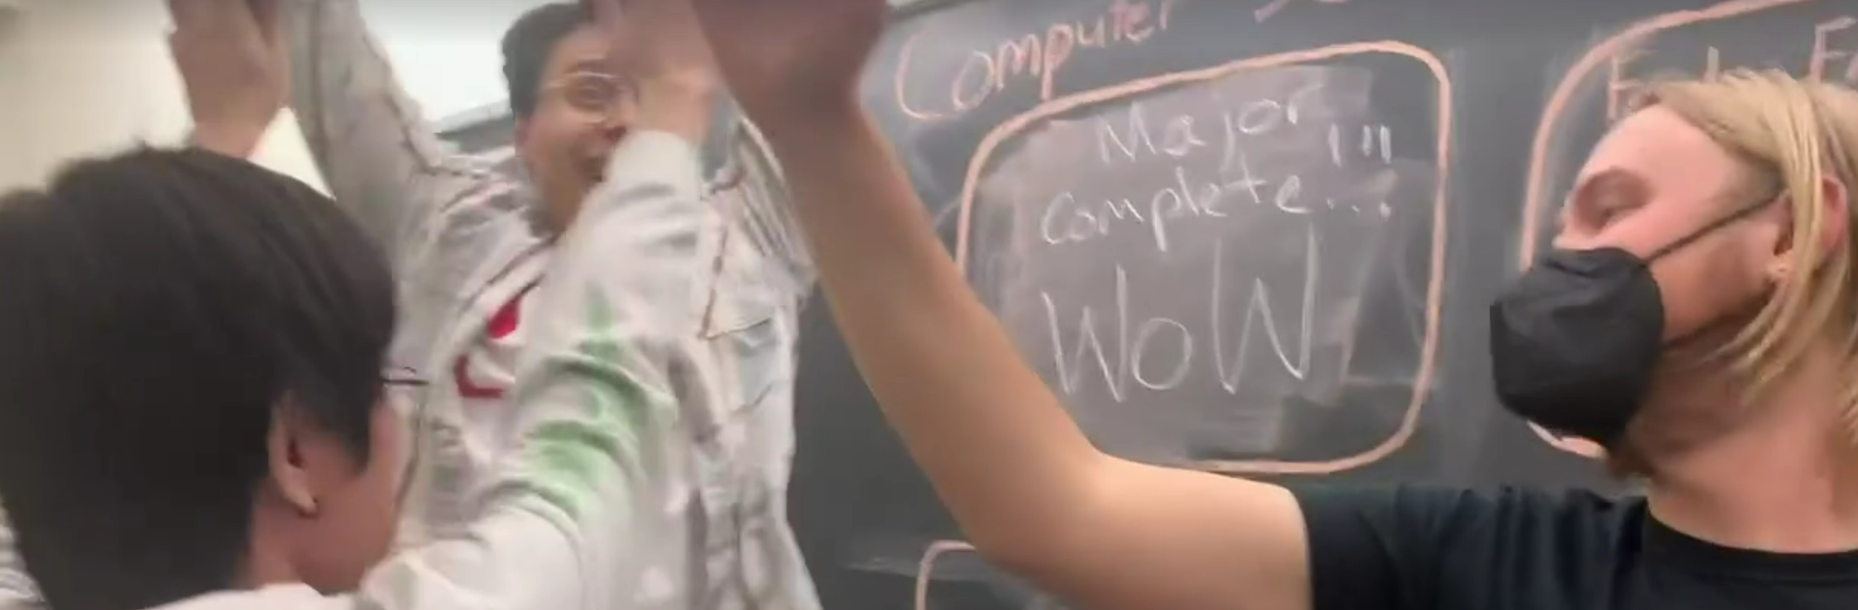 Computer
Major !!!
Complete...!
WoW